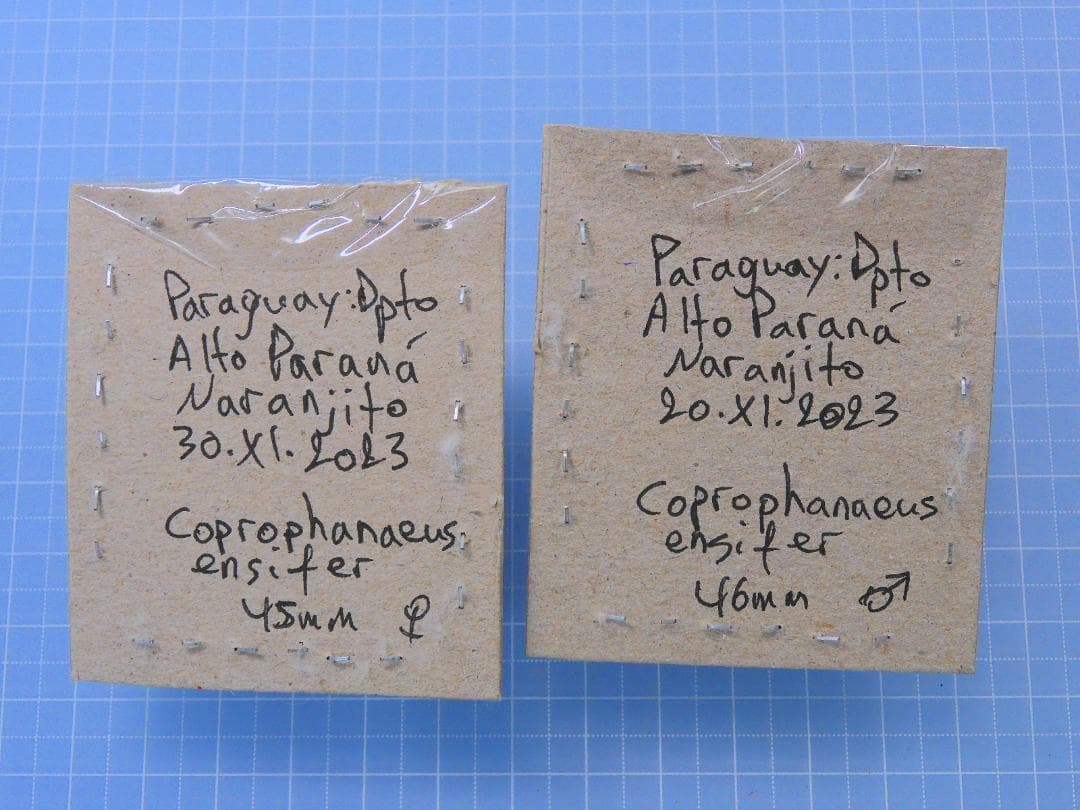 Paraguay: Dpto
Alto Paraná
Naranjito
30.XI.2023
Coprophanaeus
ensifer
45mm ♀
Paraguay: Dpto
Alto Paraná
Naranjito
20.XI.2023
Coprophanaeus
ensifer
46mm ♂